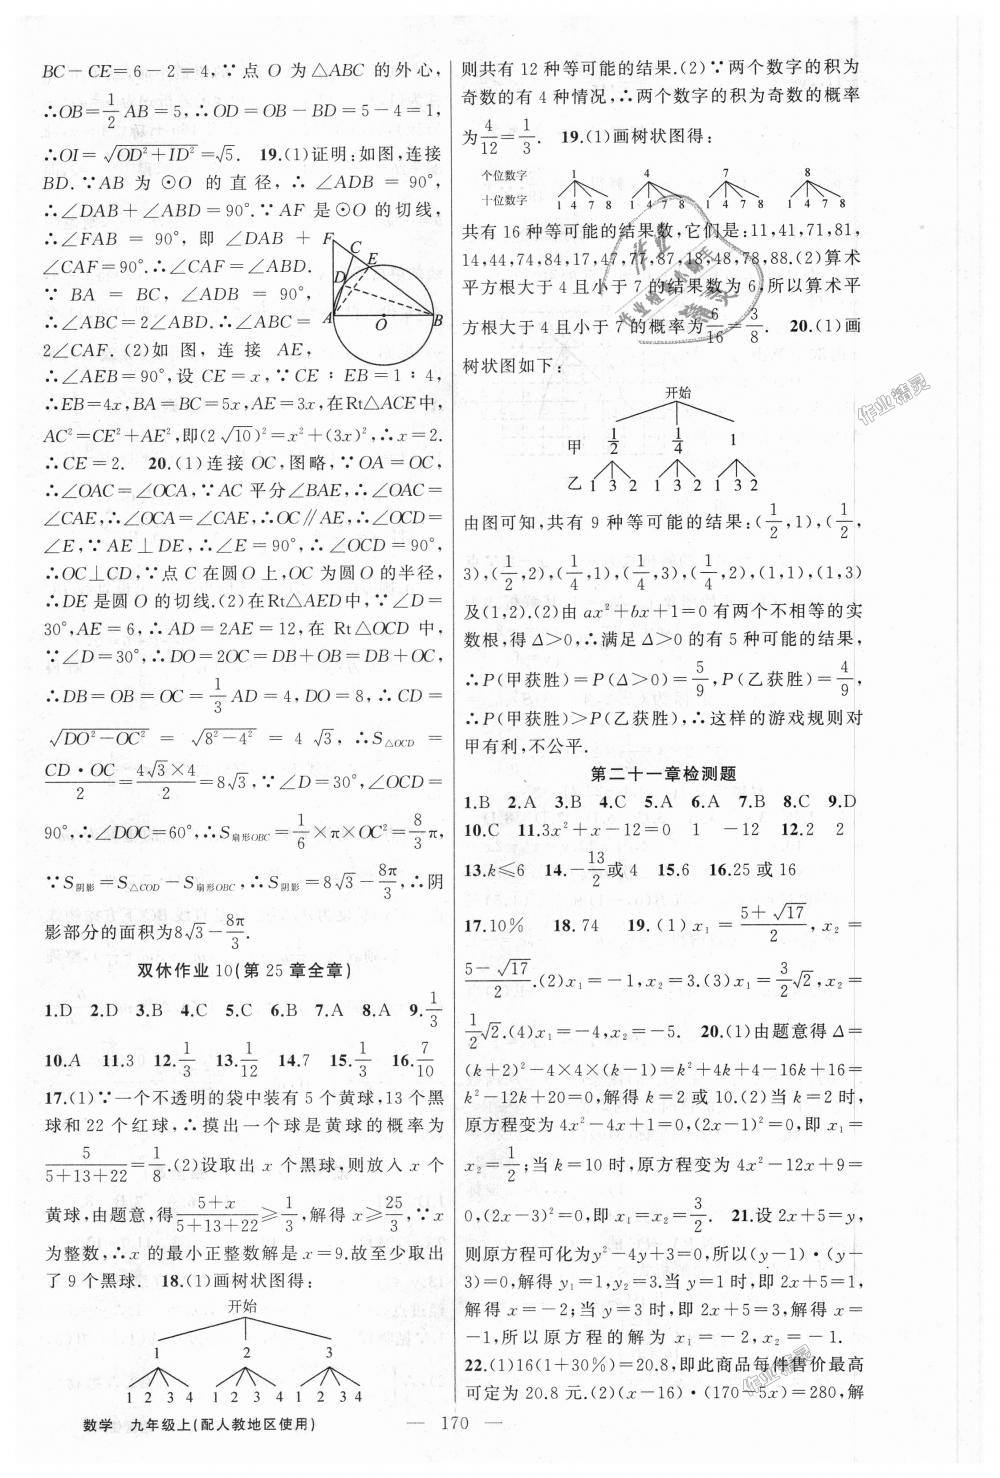 BC－CE＝6－2＝4,∵点 O 为△ABC 的外心,
∴OB＝1/2 AB＝5,∴OD＝OB－BD＝5－4＝1,
∴OI＝√(OD²＋ID²)＝√5. 19.(1)证明:如图,连接
BD.∵AB 为⊙O 的直径,∴∠ADB＝90°,
∴∠DAB＋∠ABD＝90°.∵AF 是⊙O 的切线,
∴∠FAB＝90°,即∠DAB＋
∠CAF＝90°.∴∠CAF＝∠ABD.
∵BA＝BC,∠ADB＝90°,
∴∠ABC＝2∠ABD.∴∠ABC＝
2∠CAF.(2)如图,连接 AE,
∴∠AEB＝90°,设 CE＝x,∵CE∶EB＝1∶4,
∴EB＝4x,BA＝BC＝5x,AE＝3x,在Rt△ACE中,
AC²＝CE²＋AE²,即(2√10)²＝x²＋(3x)²,∴x＝2.
∴CE＝2. 20.(1)连接 OC,图略,∵OA＝OC,
∴∠OAC＝∠OCA,∵AC 平分∠BAE,∴∠OAC＝
∠CAE,∴∠OCA＝∠CAE,∴OC∥AE,∴∠OCD＝
∠E,∵AE⊥DE,∴∠E＝90°,∴∠OCD＝90°,
∴OC⊥CD,∵点 C 在圆 O 上,OC 为圆 O 的半径,
∴DE 是圆 O 的切线.(2)在Rt△AED中,∵∠D＝
30°,AE＝6,∴AD＝2AE＝12,在 Rt△OCD 中,
∵∠D＝30°,∴DO＝2OC＝DB＋OB＝DB＋OC,
∴DB＝OB＝OC＝1/3 AD＝4,DO＝8,∴CD＝
√(DO²－OC²)＝√(8²－4²)＝4√3,∴S△OCD＝
CD·OC/2＝4√3×4/2＝8√3,∵∠D＝30°,∠OCD＝
90°,∴∠DOC＝60°,∴S扇形OBC＝1/6×π×OC²＝8/3π,
∵S阴影＝S△COD－S扇形OBC,∴S阴影＝8√3－8π/3,∴阴
影部分的面积为8√3－8π/3.
双休作业 10(第 25 章全章)
1.D 2.D 3.B 4.C 5.C 6.B 7.A 8.A 9.1/3
10.A 11.3 12.1/3 13.1/12 14.7 15.1/3 16.7/10
17.(1)∵一个不透明的袋中装有 5 个黄球,13 个黑
球和 22 个红球,∴摸出一个球是黄球的概率为
5/(5＋13＋22)＝1/8.(2)设取出 x 个黑球,则放入 x 个
黄球,由题意,得(5＋x)/(5＋13＋22)≥1/3,解得 x≥25/3,∵x
为整数,∴x 的最小正整数解是 x＝9.故至少取出
了 9 个黑球. 18.(1)画树状图得:
开始
1 2 3
1 2 3 4 1 2 3 4 1 2 3 4
则共有 12 种等可能的结果.(2)∵两个数字的积为
奇数的有 4 种情况,∴两个数字的积为奇数的概率
为4/12＝1/3. 19.(1)画树状图得:
个位数字 1 4 7 8
十位数字 1 4 7 8 1 4 7 8 1 4 7 8 1 4 7 8
共有 16 种等可能的结果数,它们是:11,41,71,81,
14,44,74,84,17,47,77,87,18,48,78,88.(2)算术
平方根大于 4 且小于 7 的结果数为 6,所以算术平
方根大于 4 且小于 7 的概率为6/16＝3/8. 20.(1)画
树状图如下:
开始
甲 1/2 1/4 1
乙 1 3 2 1 3 2 1 3 2
由图可知,共有 9 种等可能的结果:(1/2,1),(1/2,
3),(1/2,2),(1/4,1),(1/4,3),(1/4,2),(1,1),(1,3)
及(1,2).(2)由 ax²＋bx＋1＝0 有两个不相等的实
数根,得 Δ＞0,∴满足 Δ＞0 的有 5 种可能的结果,
∴P(甲获胜)＝P(Δ＞0)＝5/9,P(乙获胜)＝4/9,
∴P(甲获胜)＞P(乙获胜),∴这样的游戏规则对
甲有利,不公平.
第二十一章检测题
1.B 2.A 3.B 4.C 5.A 6.A 7.B 8.C 9.D
10.C 11.3x²＋x－12＝0 1 －12 12.2 2
13.k≤6 14.－13/2或 4 15.6 16.25 或 16
17.10% 18.74 19.(1)x₁＝(5＋√17)/2,x₂＝
(5－√17)/2.(2)x₁＝－1,x₂＝3.(3)x₁＝3/2√2,x₂＝
1/2√2.(4)x₁＝－4,x₂＝－5. 20.(1)由题意得 Δ＝
(k＋2)²－4×4×(k－1)＝k²＋4k＋4－16k＋16＝
k²－12k＋20＝0,解得 k＝2 或 10.(2)当 k＝2 时,
原方程变为 4x²－4x＋1＝0,(2x－1)²＝0,即 x₁＝
x₂＝1/2;当 k＝10 时,原方程变为 4x²－12x＋9＝
0,(2x－3)²＝0,即 x₁＝x₂＝3/2. 21.设 2x＋5＝y,
则原方程可化为y²－4y＋3＝0,所以(y－1)·(y－
3)＝0,解得 y₁＝1,y₂＝3.当 y＝1 时,即 2x＋5＝1,
解得 x＝－2;当 y＝3 时,即 2x＋5＝3,解得 x＝
－1,所以原方程的解为 x₁＝－2,x₂＝－1.
22.(1)16(1＋30%)＝20.8,即此商品每件售价最高
可定为 20.8 元.(2)(x－16)·(170－5x)＝280,解
数学 九年级上(配人教地区使用)
— 170 —
作业精灵
作业精灵